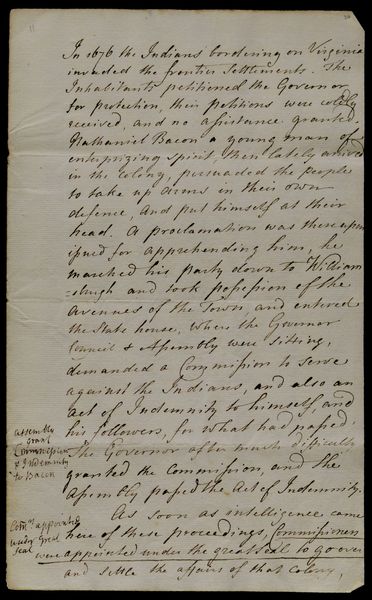 11
In 1676 the Indians bordering on Virginia
invaded the frontier Settlements. The
Inhabitants petitioned the Governor
for protection, their petitions were coldly
received, and no assistance granted.
Nathaniel Bacon a young man of
enterprizing spirit, then lately arrived
in the Colony, persuaded the people
to take up arms in their own
defence, and put himself at their
head. A proclamation was thereupon
issued for apprehending him, he
marched his party down to William
=sburgh and took possession of the
avenues of the Town, and entered
the State house, where the Governor
Council & Assembly were sitting,
demanded a Commission to serve
against the Indians, and also an
act of Indemnity to himself, and
his followers, for what had passed.
The Governor after much difficulty
granted the Commission, and the
Assembly passed the Act of Indemnity.
As soon as intelligence came
here of these proceedings, Commissioners
were appointed under the great Seal to go over
and settle the affairs of that Colony,
assembly
grant
Commission
& Indemnity
to Bacon
Com.rs appointed
under Great
Seal